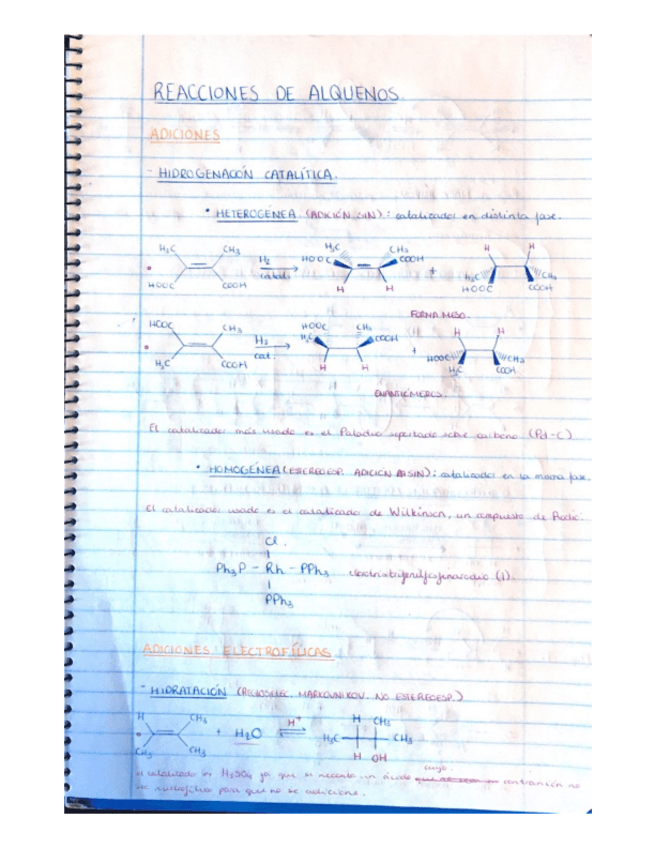 REACCIONES DE ALQUENOS.
ADICIONES
- HIDROGENACIÓN CATALÍTICA.
• HETEROGÉNEA (ADICIÓN SIN): catalizador en distinta fase.
H₃C CH₃ HOOC COOH H₂ catal. H₃C CH₃ HOOC COOH H H + H H H₃C CH₃ HOOC COOH
FORMA MESO.
HOOC CH₃ H₃C COOH H₂ cat. HOOC CH₃ H₃C COOH H H + H H HOOC CH₃ H₃C COOH
ENANTIÓMEROS.
El catalizador más usado es el Paladio soportado sobre carbono (Pd-C)
• HOMOGÉNEA (ESTEREOESP. ADICIÓN SIN): catalizador en la misma fase.
El catalizador usado es el catalizado de Wilkinson, un compuesto de Rodio.
Cl.
Ph₃P - Rh - PPh₃ (I).
PPh₃
ADICIONES ELECTROFÍLICAS
- HIDRATACIÓN (REGIOSELEC. MARKOVNIKOV. NO ESTEREOESP.)
H CH₃ CH₃ CH₃ + H₂O H⁺ H CH₃ H₃C CH₃ H OH
cuyo
catalizado es H₂SO₄ ya que se necesita un ácido contranión no
nucleófilo para que no se adicione.